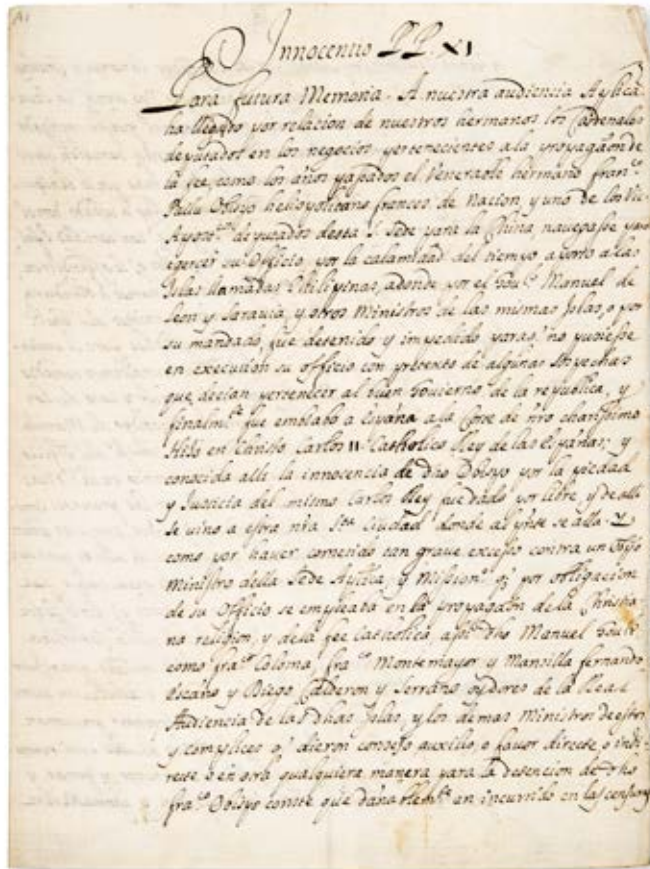 Innocentio P.P. XI
Para futura Memoria. A nuestra audiencia Ap.lica
ha llegado por relacion de nuestros hermanos los Cardenales
deputados en los negocios pertenecientes a la propagaōn de
la fee, como los años passados el Venerable hermano fran.co
Pallu Obispo heliopolitano frances de nacion y uno de los Vic.
Apost.cos deputados desta S. Sede para la China, navegasse para
egercer su Officio, por la calamidad del tiempo aporto a las
Islas llamadas Philipinas, adonde por el Gov.or Manuel de
Leon y Saravia, y otros Ministros de las mismas Islas, o por
su mandado, fue detenido y impedido para q no pusiesse
en execucion su officio con pretexto de algunas sospechas
que decian pertenecer al buen Govierno de la republica, y
finalm.te fue embiado a España a la Corte de nr̄o charissimo
Hijo en Christo Carlos II Catholico Rey de las Españas; y
conocida alli la innocencia de dho Obispo por la piedad
y Justicia del mismo Carlos Rey fue dado por libre, y de alli
se vino a esta nr̄a S.ta Ciudad donde al pñte se alla. Y
como por haver cometido tan grave excesso contra un
Ministro de la Sede Ap.lica, y Mission.o q por obligacion
de su Officio se empleaba en la propagaōn de la Christia
na religion, y de la fee Catholica, assi dho Manuel Gov.or
como fra.co Coloma, fra.co Montemayor y Mansilla, fernando
Escaño y Diego Calderon y Serrano oydores de la Real
Audiencia de las dhas Islas, y los demas Ministros
y complices q dieron consejo auxilio, o favor directe, o indi
recte, o en otra qualquiera manera para la detencion de dho
fra.co Obispo conste que dañablem.te an incurrido en las censuras